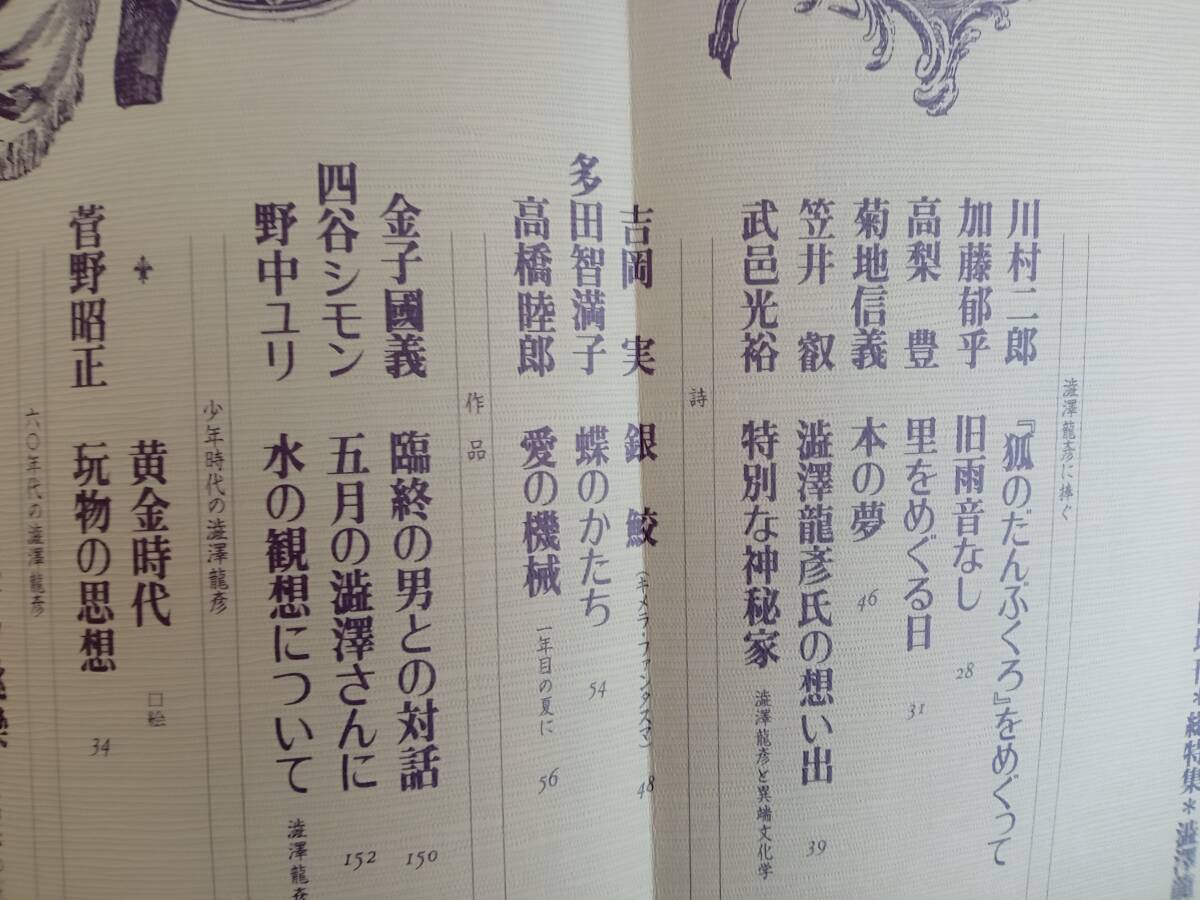 総特集*澁澤
澁澤龍彦に捧ぐ
川村二郎 『狐のだんぶくろ』をめぐって
加藤郁乎 旧雨音なし 28
高梨 豊 里をめぐる日 31
菊地信義 本の夢 46
笠井 叡 澁澤龍彦氏の想い出 39
武邑光裕 特別な神秘家 澁澤龍彦と異端文化学
詩
吉岡 実 銀鮫 (キメラ・ファンタスマ) 48
多田智満子 蝶のかたち 54
高橋睦郎 愛の機械 一年目の夏に 56
作品
金子國義 臨終の男との対話 150
四谷シモン 五月の澁澤さんに 152
野中ユリ 水の観想について 澁澤龍彦
少年時代の澁澤龍彦
黄金時代 口絵
菅野昭正 玩物の思想 34
六〇年代の澁澤龍彦